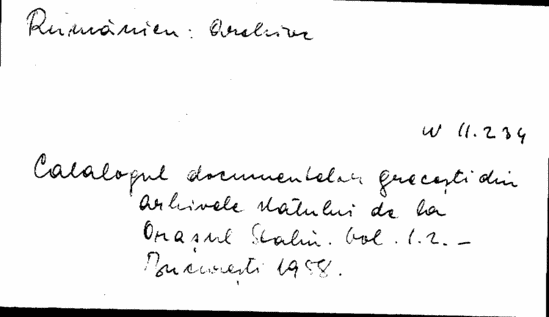 Rumänien: Archive
W 11.234
Catalogul documentelor grecești din
arhivele statului de la
Orașul Stalin. Vol. 1.2. –
București 1958.